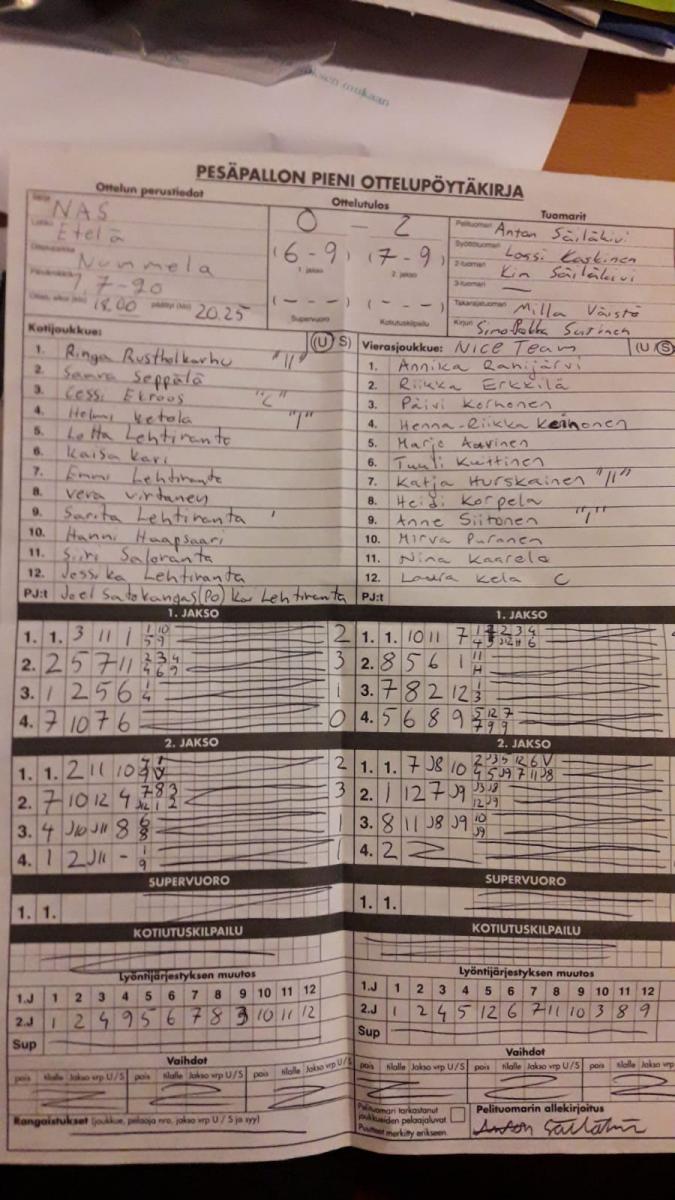 sen mukaan
PESÄPALLON PIENI OTTELUPÖYTÄKIRJA
Ottelun perustiedot
Ottelutulos
Tuomarit
NAS
Etelä
Nummela
1.7-20
18.00 päättyi (klo) 20.25
0 - 2
(6-9) (7-9)
1. jakso 2. jakso
(---) (---)
Supervuoro Kotiutuskilpailu
Pelituomari Anton Säiläkivi
Syöttötuomari Lassi Koskinen
2-tuomari Kim Säiläkivi
3-tuomari —
Takarajatuomari Milla Väistö
Kirjuri
Kotijoukkue: (U S)
1. Ringa Rustholkarhu "II"
2. Saara Seppälä
3. Cessi Ekroos "C"
4. Helmi Ketola "I"
5. Lotta Lehtiranta
6. Kaisa Kari
7. Emmi Lehtiranta
8. Vera Virtanen
9. Sarita Lehtiranta
10. Hanni Haapsaari
11. Siiri Saloranta
12. Jessika Lehtiranta
PJ:t Joel Satokangas (PO) Kai Lehtiranta
Vierasjoukkue: NICE TEAM (U/S)
1. Annika Ranijärvi
2. Riikka Erkkilä
3. Päivi Korhonen
4. Henna-Riikka Keinonen
5. Marjo Aavinen
6. Tuuli Kuittinen
7. Katja Hurskainen "II"
8. Heidi Korpela
9. Anne Siitonen "I"
10. Mirva Puranen
11. Nina Kaarela
12. Laura Kela C
PJ:t
1. JAKSO
1. 1. 3 11 1 5 10 9 2
2. 2 5 7 11 2 3 4 4 6 9 3
3. 1 2 5 6 1 4 1
4. 7 10 7 6 0
1. JAKSO
1. 1. 10 11 7
2. 8 5 6 1 11
3. 7 8 2 12 1 3
4. 5 6 8 9 5 12 7 7 9 9
2. JAKSO
1. 1. 2 11 10 2
2. 7 10 12 4 7 8 3 J12 1 2 3
3. 4 J10 J11 8 6 8 1
4. 1 2 J11 - 1 9 1
2. JAKSO
1. 1. 7 J8 10 2 J3 5 12 6 V 4 5 J9 7 11 J8
2. 1 12 7 J9 J3 J8 12 J9
3. 8 11 J8 J9 10 J9
4. 2
SUPERVUORO
1. 1.
SUPERVUORO
1. 1.
KOTIUTUSKILPAILU
KOTIUTUSKILPAILU
Lyöntijärjestyksen muutos
1.J 1 2 3 4 5 6 7 8 9 10 11 12
2.J 1 2 4 9 5 6 7 8 3 10 11 12
Sup
Lyöntijärjestyksen muutos
1.J 1 2 3 4 5 6 7 8 9 10 11 12
2.J 1 2 4 5 12 6 7 11 10 3 8 9
Sup
Vaihdot
pois tilalle Jakso vrp U/S pois tilalle Jakso vrp U/S pois tilalle Jakso vrp U/S
Vaihdot
pois tilalle Jakso vrp U/S pois tilalle Jakso vrp U/S pois tilalle Jakso vrp U/S
Rangaistukset (joukkue, pelaaja nro, jakso vrp U/S ja syy)
Pelituomari tarkastanut
joukkueiden pelaajaluvat.
Puutteet merkitty erikseen.
Pelituomarin allekirjoitus
Anton Säiläkivi